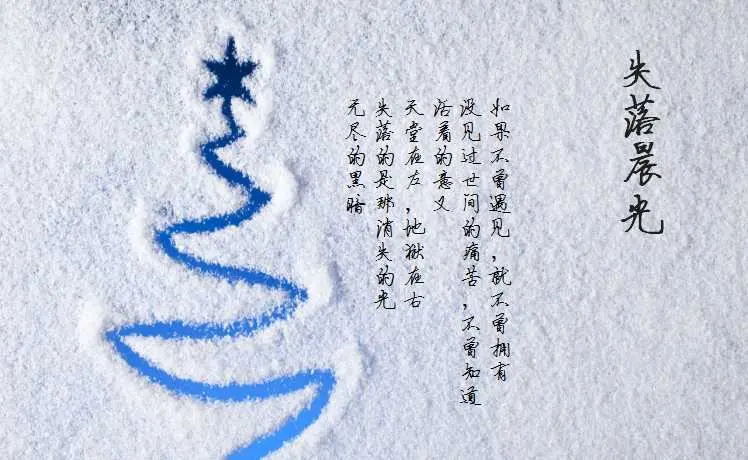 失落晨光
如果不曾遇见，就不曾拥有
没见过世间的痛苦，不曾知道
活着的意义
天堂在左，地狱在右
失落的是那消失的光
无尽的黑暗